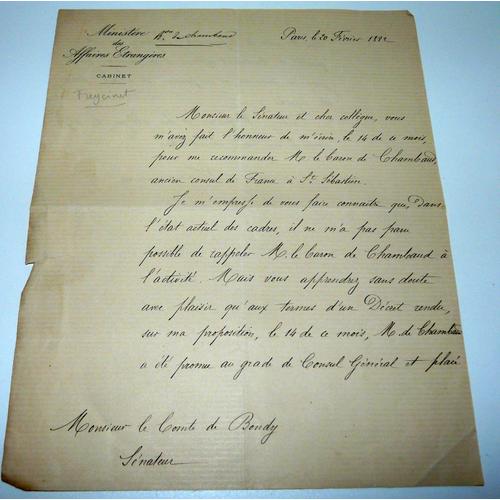 Ministère
des
Affaires Etrangères
CABINET
Bon de Chambaud
Paris, le 20 Février 1882
Freycinet
Monsieur le Sénateur et cher collègue, vous
m'avez fait l'honneur de m'écrire, le 14 de ce mois,
pour me recommander M. le baron de Chambaud,
ancien consul de France à St. Sébastien.
Je m'empresse de vous faire connaître que, dans
l'état actuel des cadres, il ne m'a pas paru
possible de rappeler M. le baron de Chambaud à
l'activité. Mais vous apprendrez sans doute
avec plaisir qu'aux termes d'un Décret rendu,
sur ma proposition, le 14 de ce mois, M. de Chambaud
a été promu au grade de Consul Général et placé
Monsieur le Comte de Bondy
Sénateur